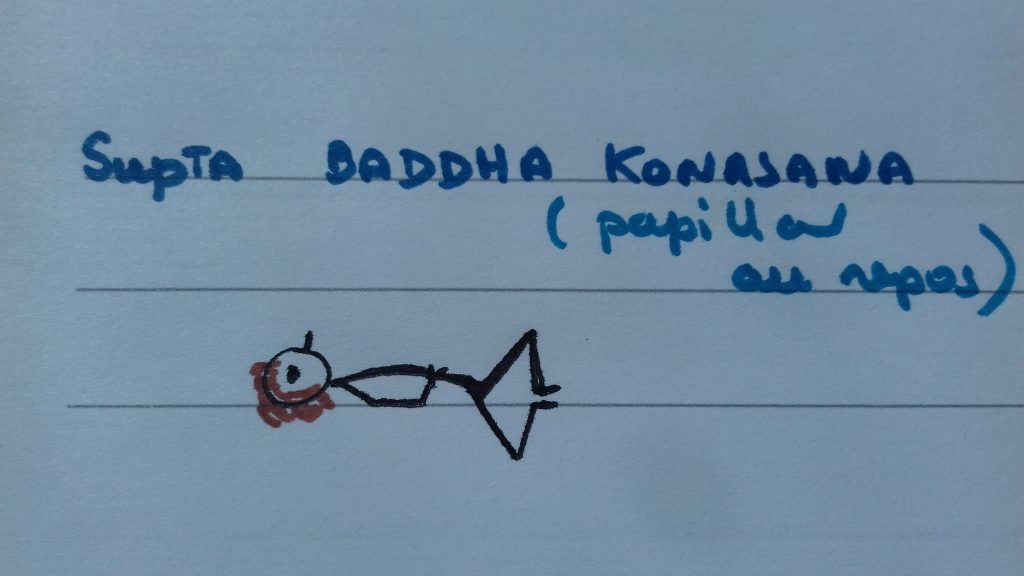 Supta BADDHA KONASANA
(papillon
au repos)